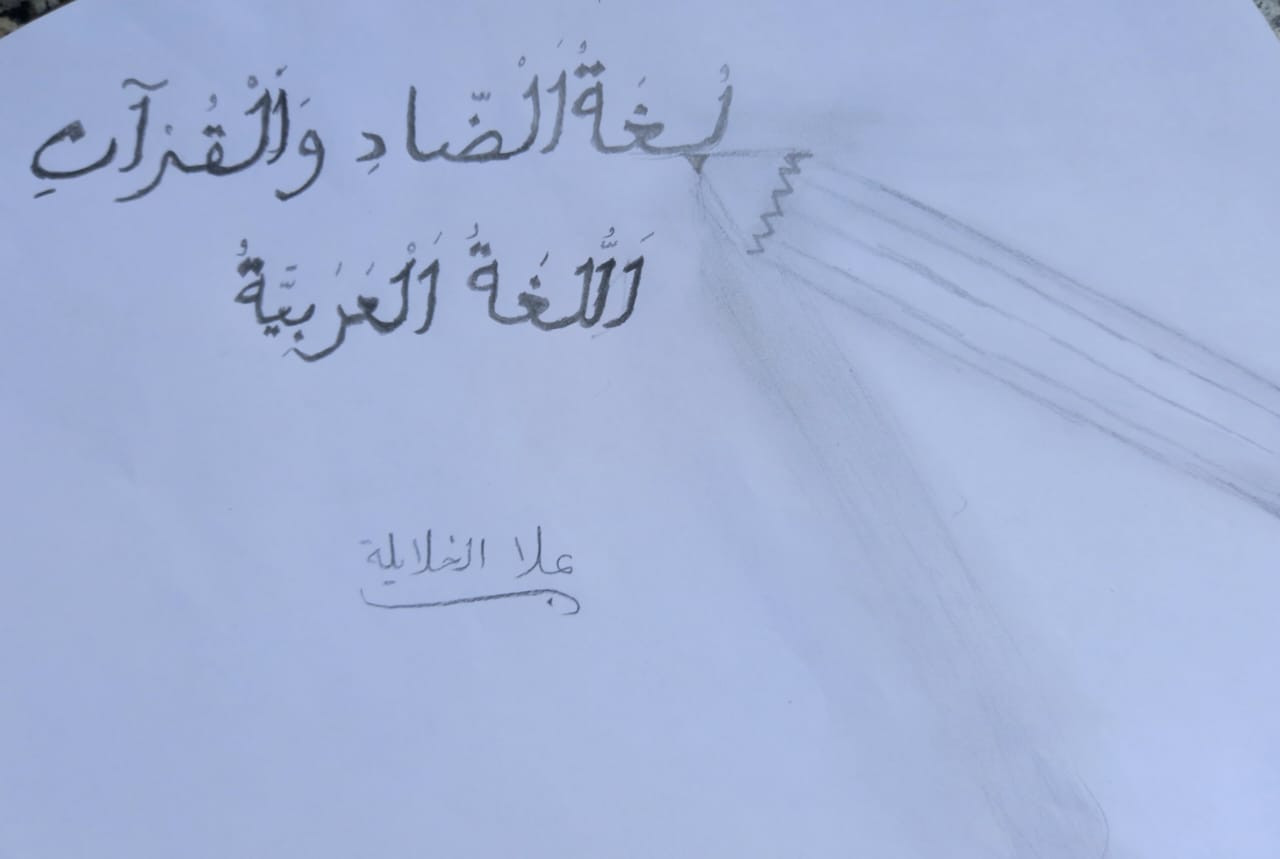 لُغَةُ اَلْضَّادِ وَاَلْقُرْآنِ
اَللُّغَةُ اَلْعَرَبِيَّةُ
علا الخلايلة